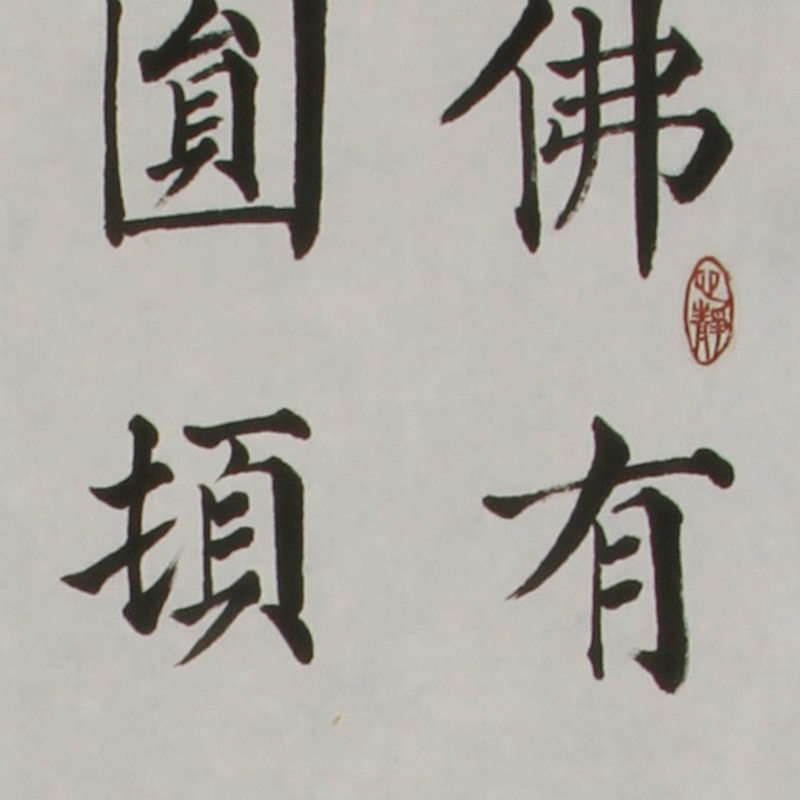 佛有
靜
圓頓